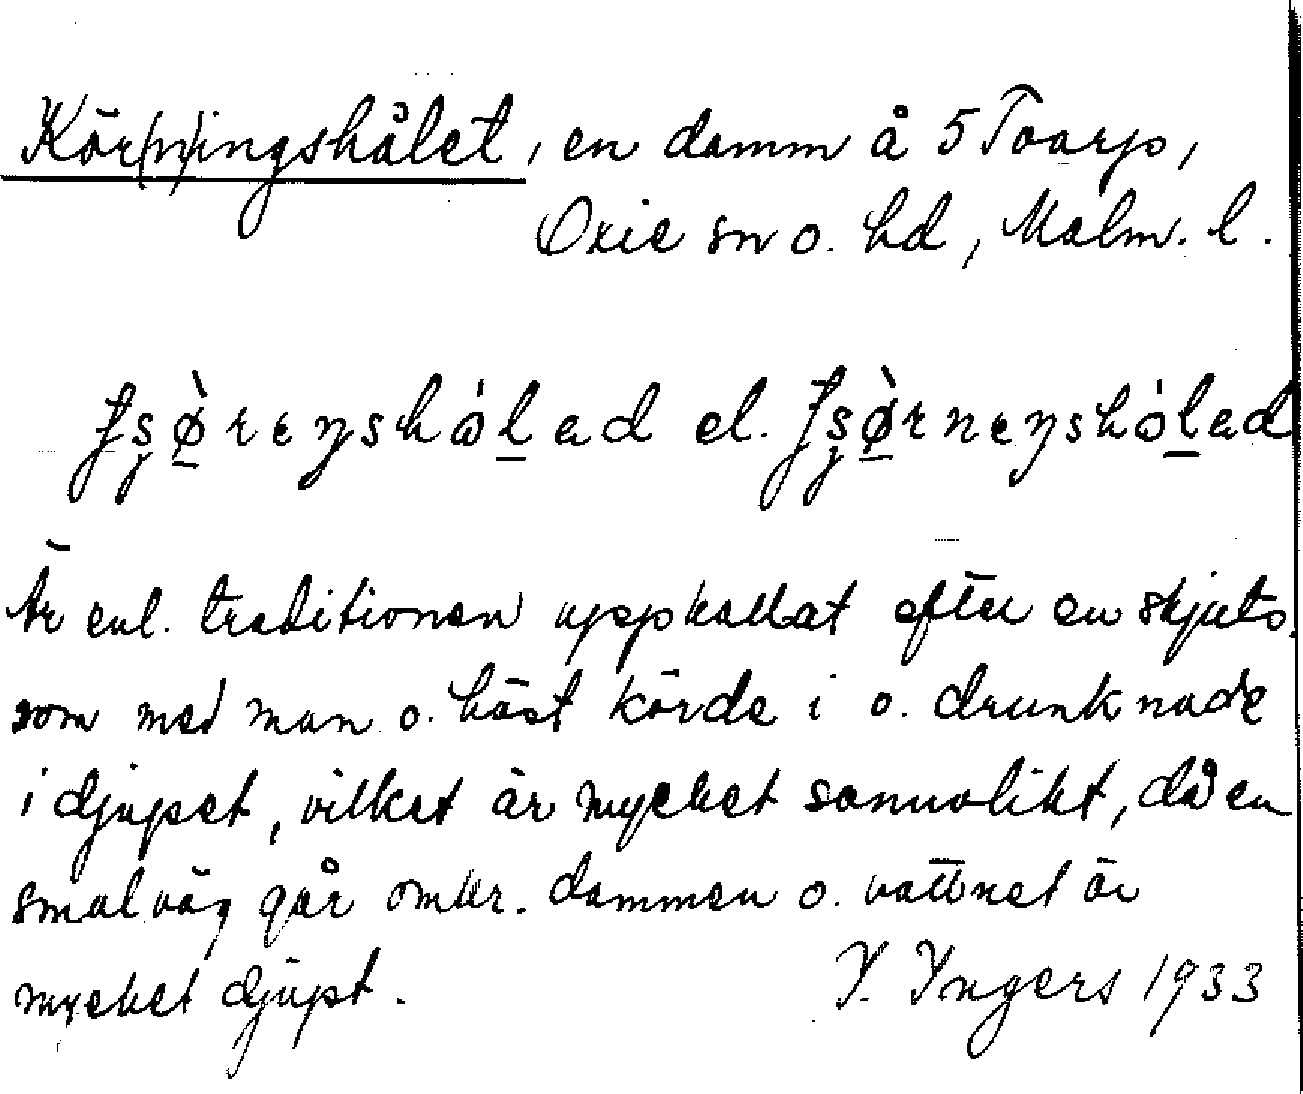 Kör(n)ingshålet, en damm å 5 Toarp,
Oxie sn o. hd, Malm. l.
el.
Är enl. traditionen uppkallat efter en skjuts,
som med man o. häst körde i o. drunknade
i djupet, vilket är mycket sannolikt, då en
smal väg går omkr. dammen o. vattnet är
mycket djupt.
I. Ingers 1933